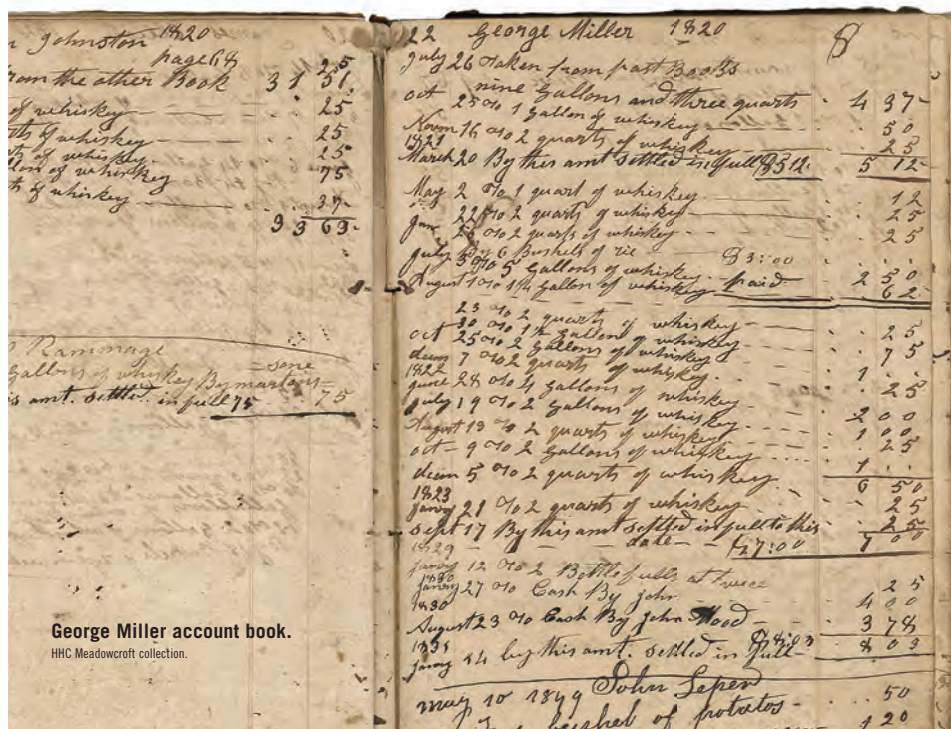 Johnston 1820
page 68
from the other Book 3 1 51.
of whiskey 25
of whiskey 25
of whiskey 25
of whiskey 75
of whiskey 37
3 3 63
Rammage
Gallons of whiskey By
amt. settled in full 75 75
George Miller account book.
HHC Meadowcroft collection.
22 George Miller 1820 8
July 26 Taken from past Books
nine Gallons and three quarts 4 37
oct 25 To 1 Gallon of whiskey 50
Novm 16 To 2 quarts of whiskey 25
1821
March 20 By this amt settled in full $5 12 5 12
May 2 To 1 quart of whiskey 12
22 To 2 quarts of whiskey 25
26 To 2 quarts of whiskey 25
July By 6 Bushels of rie $3:00
To 5 Gallons of whiskey paid 2 50
August 1 To 1¼ Gallon of whiskey 62
23 To 2 quarts of whiskey 25
30 To 1½ Gallons of whiskey 75
oct 25 To 2 Gallons of whiskey 1
decm 7 To 2 quarts of whiskey 25
1822
June 28 To 4 gallons of whiskey 2 00
July 19 To 2 Gallons of whiskey 1 00
August 13 To 2 quarts of whiskey 25
oct - 9 To 2 Gallons of whiskey 1
6 50
decm 5 To 2 quarts of whiskey 25
1823
Janry 21 To 2 quarts of whiskey 25
Sept 17 By this amt settled in full to this 7 00
date $7:00
1829
Janry 12 To 2 Bottle fulls at twice 25
1830
Janry 27 To Cash By John 4 00
1830
August 23 To Cash By John 3 78
1831
Janry 14 by this amt. settled in full $8:03 8 03
may 10 1899 John 50
bushel of potatos 1 20